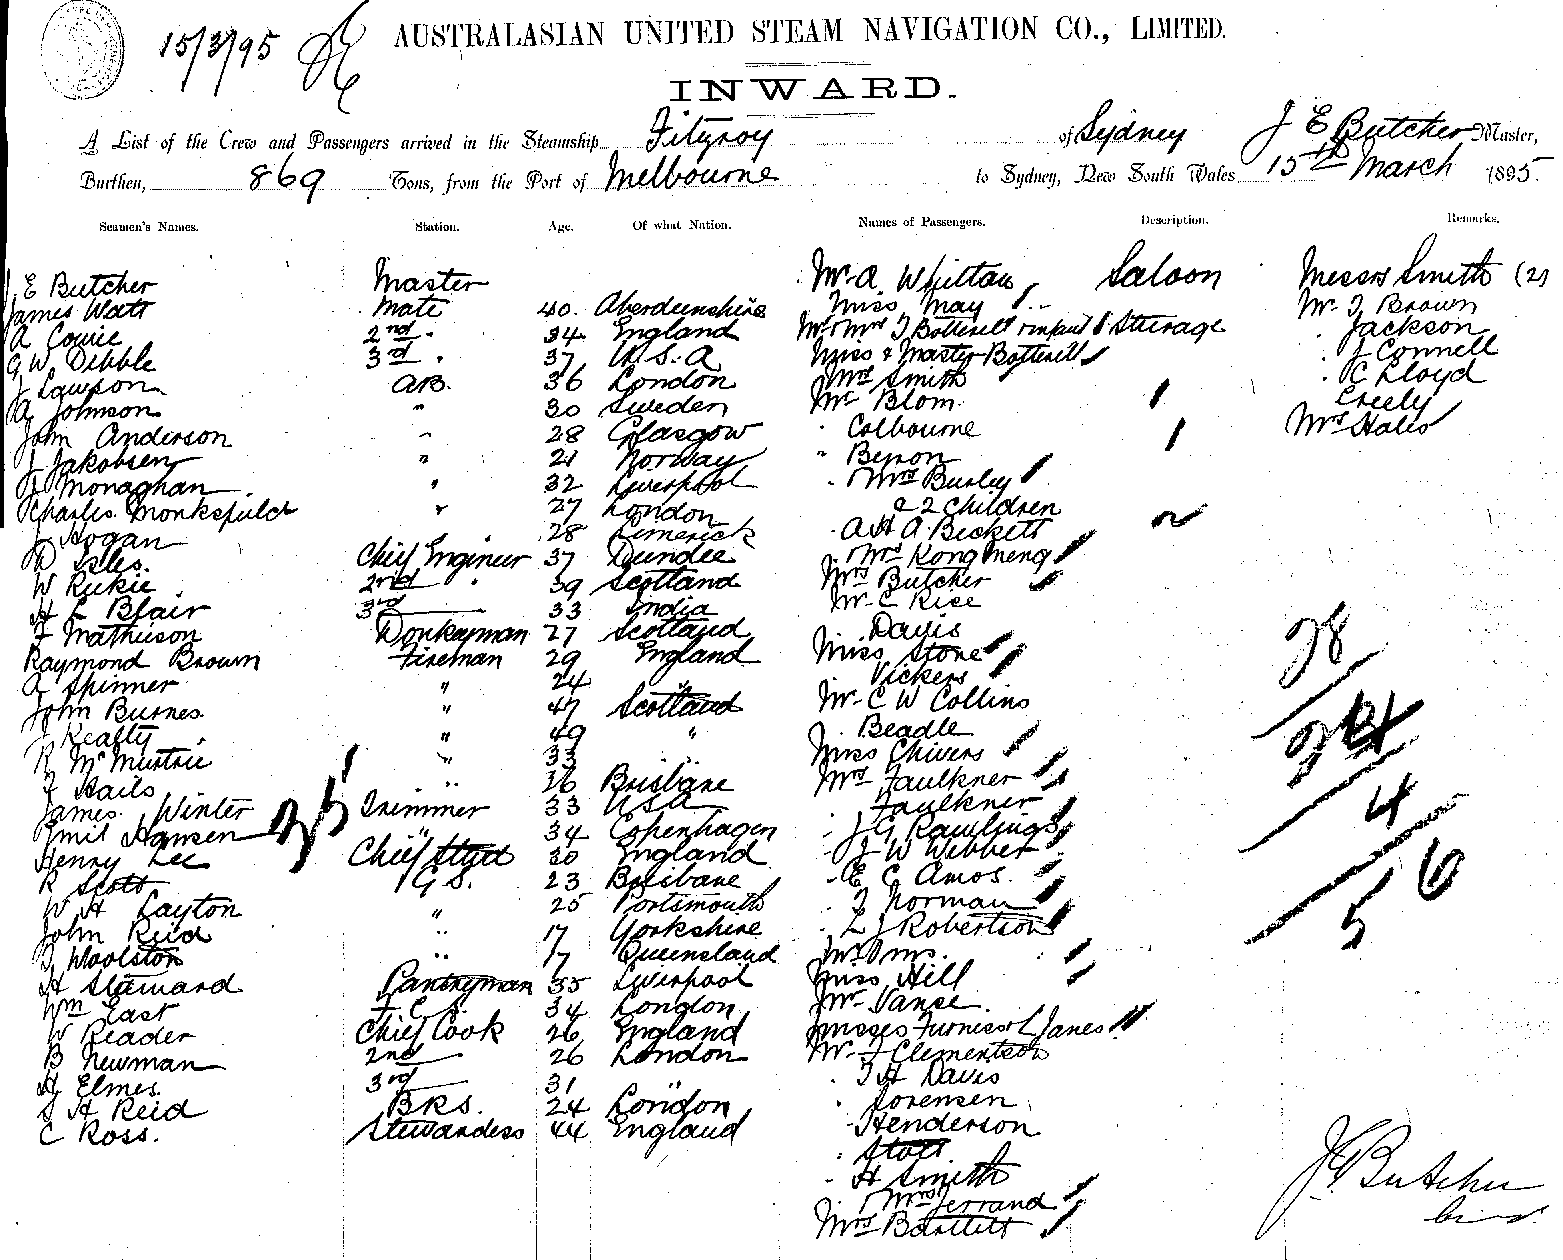 15/3/95
AUSTRALASIAN UNITED STEAM NAVIGATION CO., LIMITED.
INWARD.
A List of the Crew and Passengers arrived in the Steamship Fitzroy of Sydney J E Butcher Master,
Burthen, 869 Tons, from the Port of Melbourne to Sydney, New South Wales 15th March 1895.
Seamen's Names. Station. Age. Of what Nation. Names of Passengers. Description. Remarks.
J E Butcher Master
James Watt Mate 40. Aberdeenshire
A Cowie 2nd " 34 England
G W Dibble 3rd " 37 U.S.A
J Lawson AB. 36 London
A Johnson " 30 Sweden
John Anderson " 28 Glasgow
J Jakobsen " 21 Norway
J Monaghan " 32 Liverpool
Charles Monksfield " 27 London
J Hogan 28 Limerick
D Isles. Chief Engineer 37 Dundee
W Rickie 2nd " 39 Scotland
H L Blair 3rd 33 India
F Mathieson Donkeyman 27 Scotland
Raymond Brown Fireman 29 England
A Spinner " 24 "
John Burnes " 47 Scotland
J Kealty " 49 "
R McMustrie " 33 "
J Hails " 36 Brisbane
James Winter Trimmer 33 USA
Emil Hansen " 34 Copenhagen
Henry Lee Chief Stwd 30 England
R Scott G.S. 23 Brisbane
W H Layton " 25 Portsmouth
John Reid " 17 Yorkshire
J Woolston " 17 Queensland
H Steward Pantryman 35 Liverpool
Wm East F.C.S. 34 London
W Reader Chief Cook 26 England
B Newman 2nd 26 London
H Elmes. 3rd 31 "
S H Reid BKS. 24 London
C Ross. Stewardess 44 England
35
Mr A. Whittan Saloon
Miss May
Mr & Mrs J Botterell & infant Steerage
Miss & Master Botterill
Mrs Smith
Mr Blom
" Colbourne
" Byron
" & Mrs Burley
& 2 children
A H A Beckett
" & Mrs Kong Meng
Mrs Butcher
Mr C Rice
Davis
Miss Stone
Vickers
Mr C W Collins
" Beadle
Miss Chivers
Mrs Faulkner
" Faulkner
" J G Rawlings
" J W Webber
" E C Amos.
" J Norman
" L J Robertson
Mr Oms.
Miss Hill
Mr Vanse.
Misses Furness & Janes
Mr J Clementson
" J H Davis
" Sorensen
" Henderson
" Stott
" H Smith
" & Mrs Jerrand
Mrs Bartlett
Messrs Smith (2)
Mr J Brown
" Jackson
" J Connell
" C Lloyd
Creely
Mrs Hales
28
24
4
56
J E Butcher